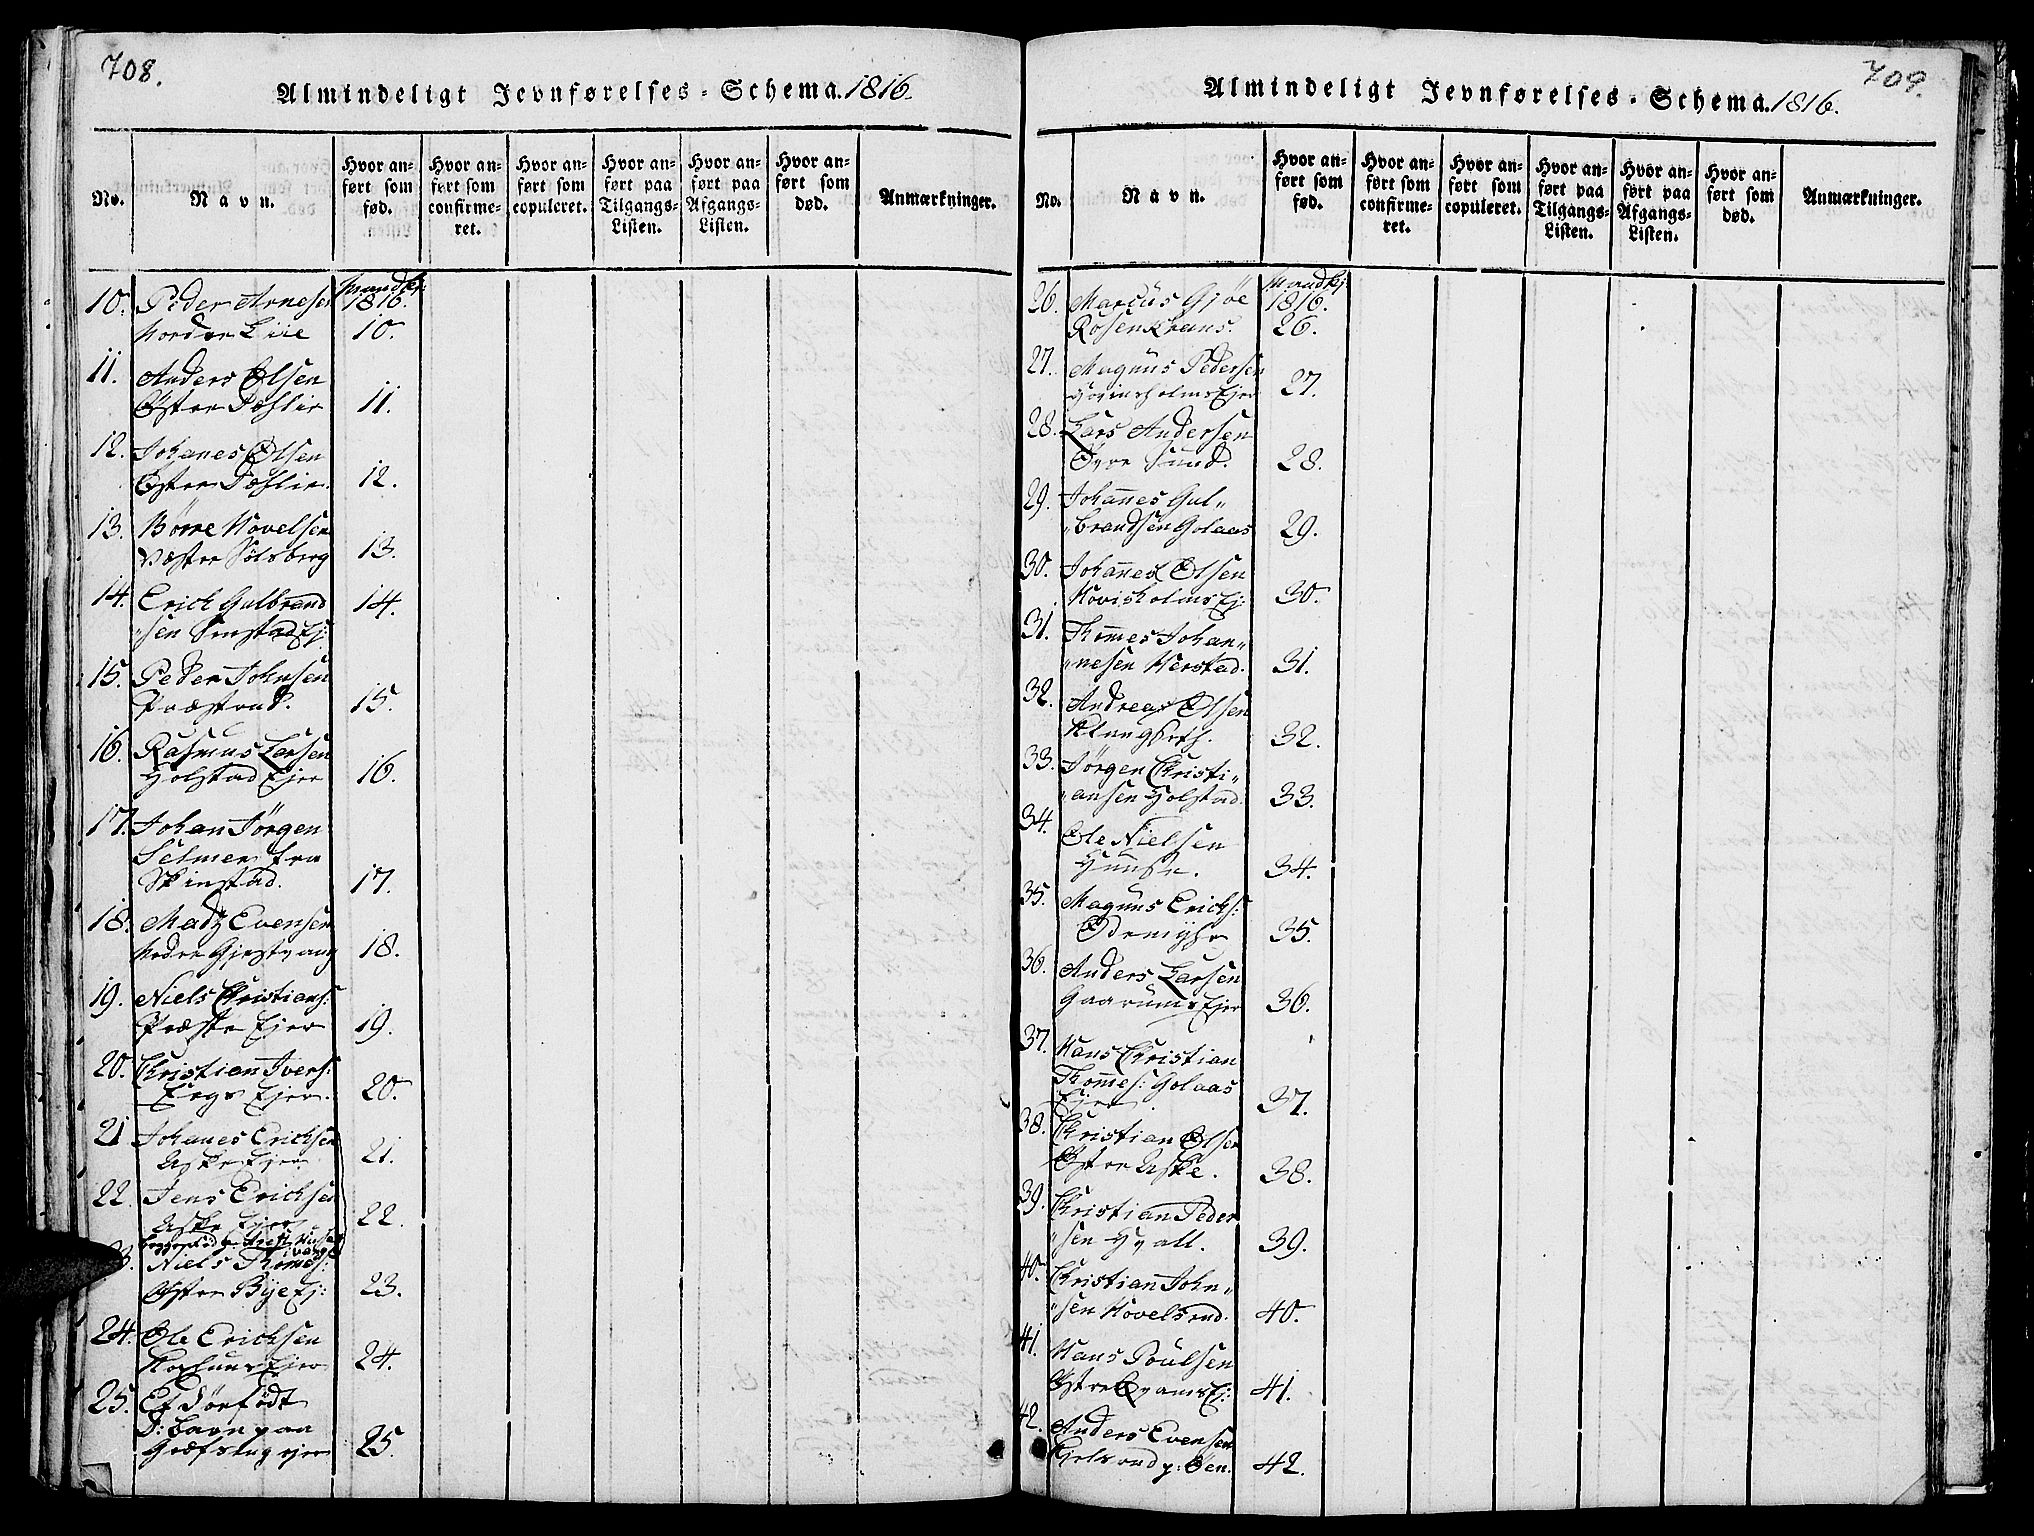 708.
Almindeligt Jevnførelses-Schema. 1816.
No.
Navn.
Hvor an-
ført som
fød.
Hvor an-
ført som
confirme-
ret.
Hvor an-
ført som
copuleret.
Hvor an-
ført paa
Tilgangs-
Listen.
Hvor an-
ført paa
Afgangs-
Listen.
Hvor an-
ført som
død.
Anmærkninger.
Mandkj:
10. Peder Arnesen 1816.
Nordre Lie 10.
11. Anders Olsen
Østre Pæslie 11.
12. Johanes Olsen
Østre Pæslie. 12.
13. Börre Hovelsen
Væstre Sölsberg 13.
14. Erich Gulbrand 14.
"sen Ej:
15. Peder Johnsen
Præsterud. 15.
16. Rasmus Larsen
Holstad Ejer 16.
17. Johan Jörgen
Selmer fra
Skinstad. 17.
18. Madz Evensen
Nedre Gjestvang 18.
19. Niels Christians:
Præste Ejer 19.
20. Christian Ivers:
Ejer. 20.
21 Johanes Erichsen
Aske Ejer 21.
22. Jens Erichsen
Aske Ejer 22.
23. Niels Thomes:
Østre Bye Ej: 23.
24. Ole Erichsen
Ejer 24.
25. Et dörfödt
D: Barn paa
ejer 25.
709.
Almindeligt Jevnførelses-Schema. 1816.
No.
Navn.
Hvor an-
ført som
fød.
Hvor an-
ført som
confirme-
ret.
Hvor an-
ført som
copuleret.
Hvor an-
ført paa
Tilgangs-
Listen.
Hvor an-
ført paa
Afgangs-
Listen.
Hvor an-
ført som
død.
Anmærkninger.
Mandkj:
26. Marcus Gjöe 1816.
Rosenkrans. 26.
27. Magnus Pedersen
Hovinsholms Ejer 27.
28. Lars Andersen
Øvre Sund. 28.
29. Johannes Gul"
"brandsen Golaas 29.
30. Johannes Olsen
Hovisholms Ej: 30.
31. Thomes Johan"
"nesen Herstad. 31.
32. Andreas Olsen
32.
33. Jörgen Christi"
"ansen Holstad. 33.
34. Ole Nielsen
34.
35. Magnus Erichs:
35.
36. Anders Larsen
Gaarums Ejer 36.
37. Hans Christian
Thomes: Golaas
Ejer 37.
38. Christian Olsen
Østre Aske. 38.
39. Christian Peder
"sen 39.
40. Christian John"
"sen Hovelsrud. 40.
41. Hans Poulsen
Østre Ej: 41.
42. Anders Evensen
p: Öen. 42.